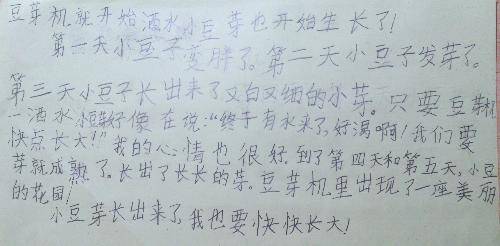 豆芽机就开始洒水,小豆芽也开始生长了!
第一天小豆子变胖了。第二天小豆子发芽了。
第三天小豆子长出来了又白又细的小芽。只要豆芽机
一洒水小豆芽好像在说:“终于有水来了,好渴啊!我们要
快点长大!”我的心情也很好。到了第四天和第五天,小豆
芽就成熟了。长出了长长的芽。豆芽机里出现了一座美丽
的花园!
小豆芽长出来了,我也要快快长大!